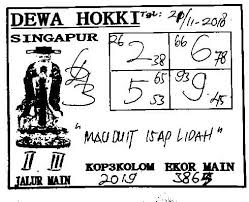 DEWA HOKKI Tgl: 21/11-2018
SINGAPUR
26 2 38 66 6 78
5 65 53 93 9 45
"MAU DUIT ISAP LIDAH"
II III KOP3KOLOM EKOR MAIN
JALUR MAIN 2019 3865